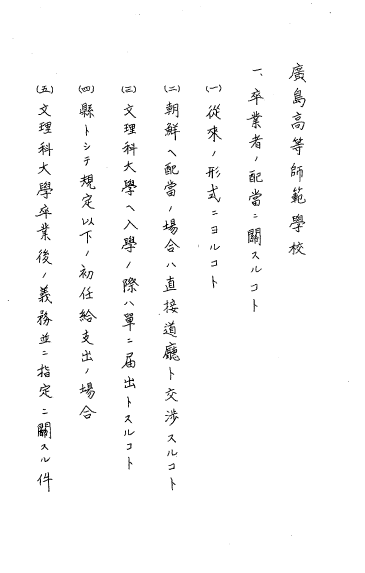 廣島高等師範學校
一、卒業者ノ配當ニ關スルコト
(一)從來ノ形式ニヨルコト
(二)朝鮮ヘ配當ノ場合ハ直接道廳ト交渉スルコト
(三)文理科大學ヘ入學ノ際ハ單ニ届出トスルコト
(四)縣トシテ規定以下ノ初任給支出ノ場合
(五)文理科大學卒業後ノ義務並ニ指定ニ關スル件